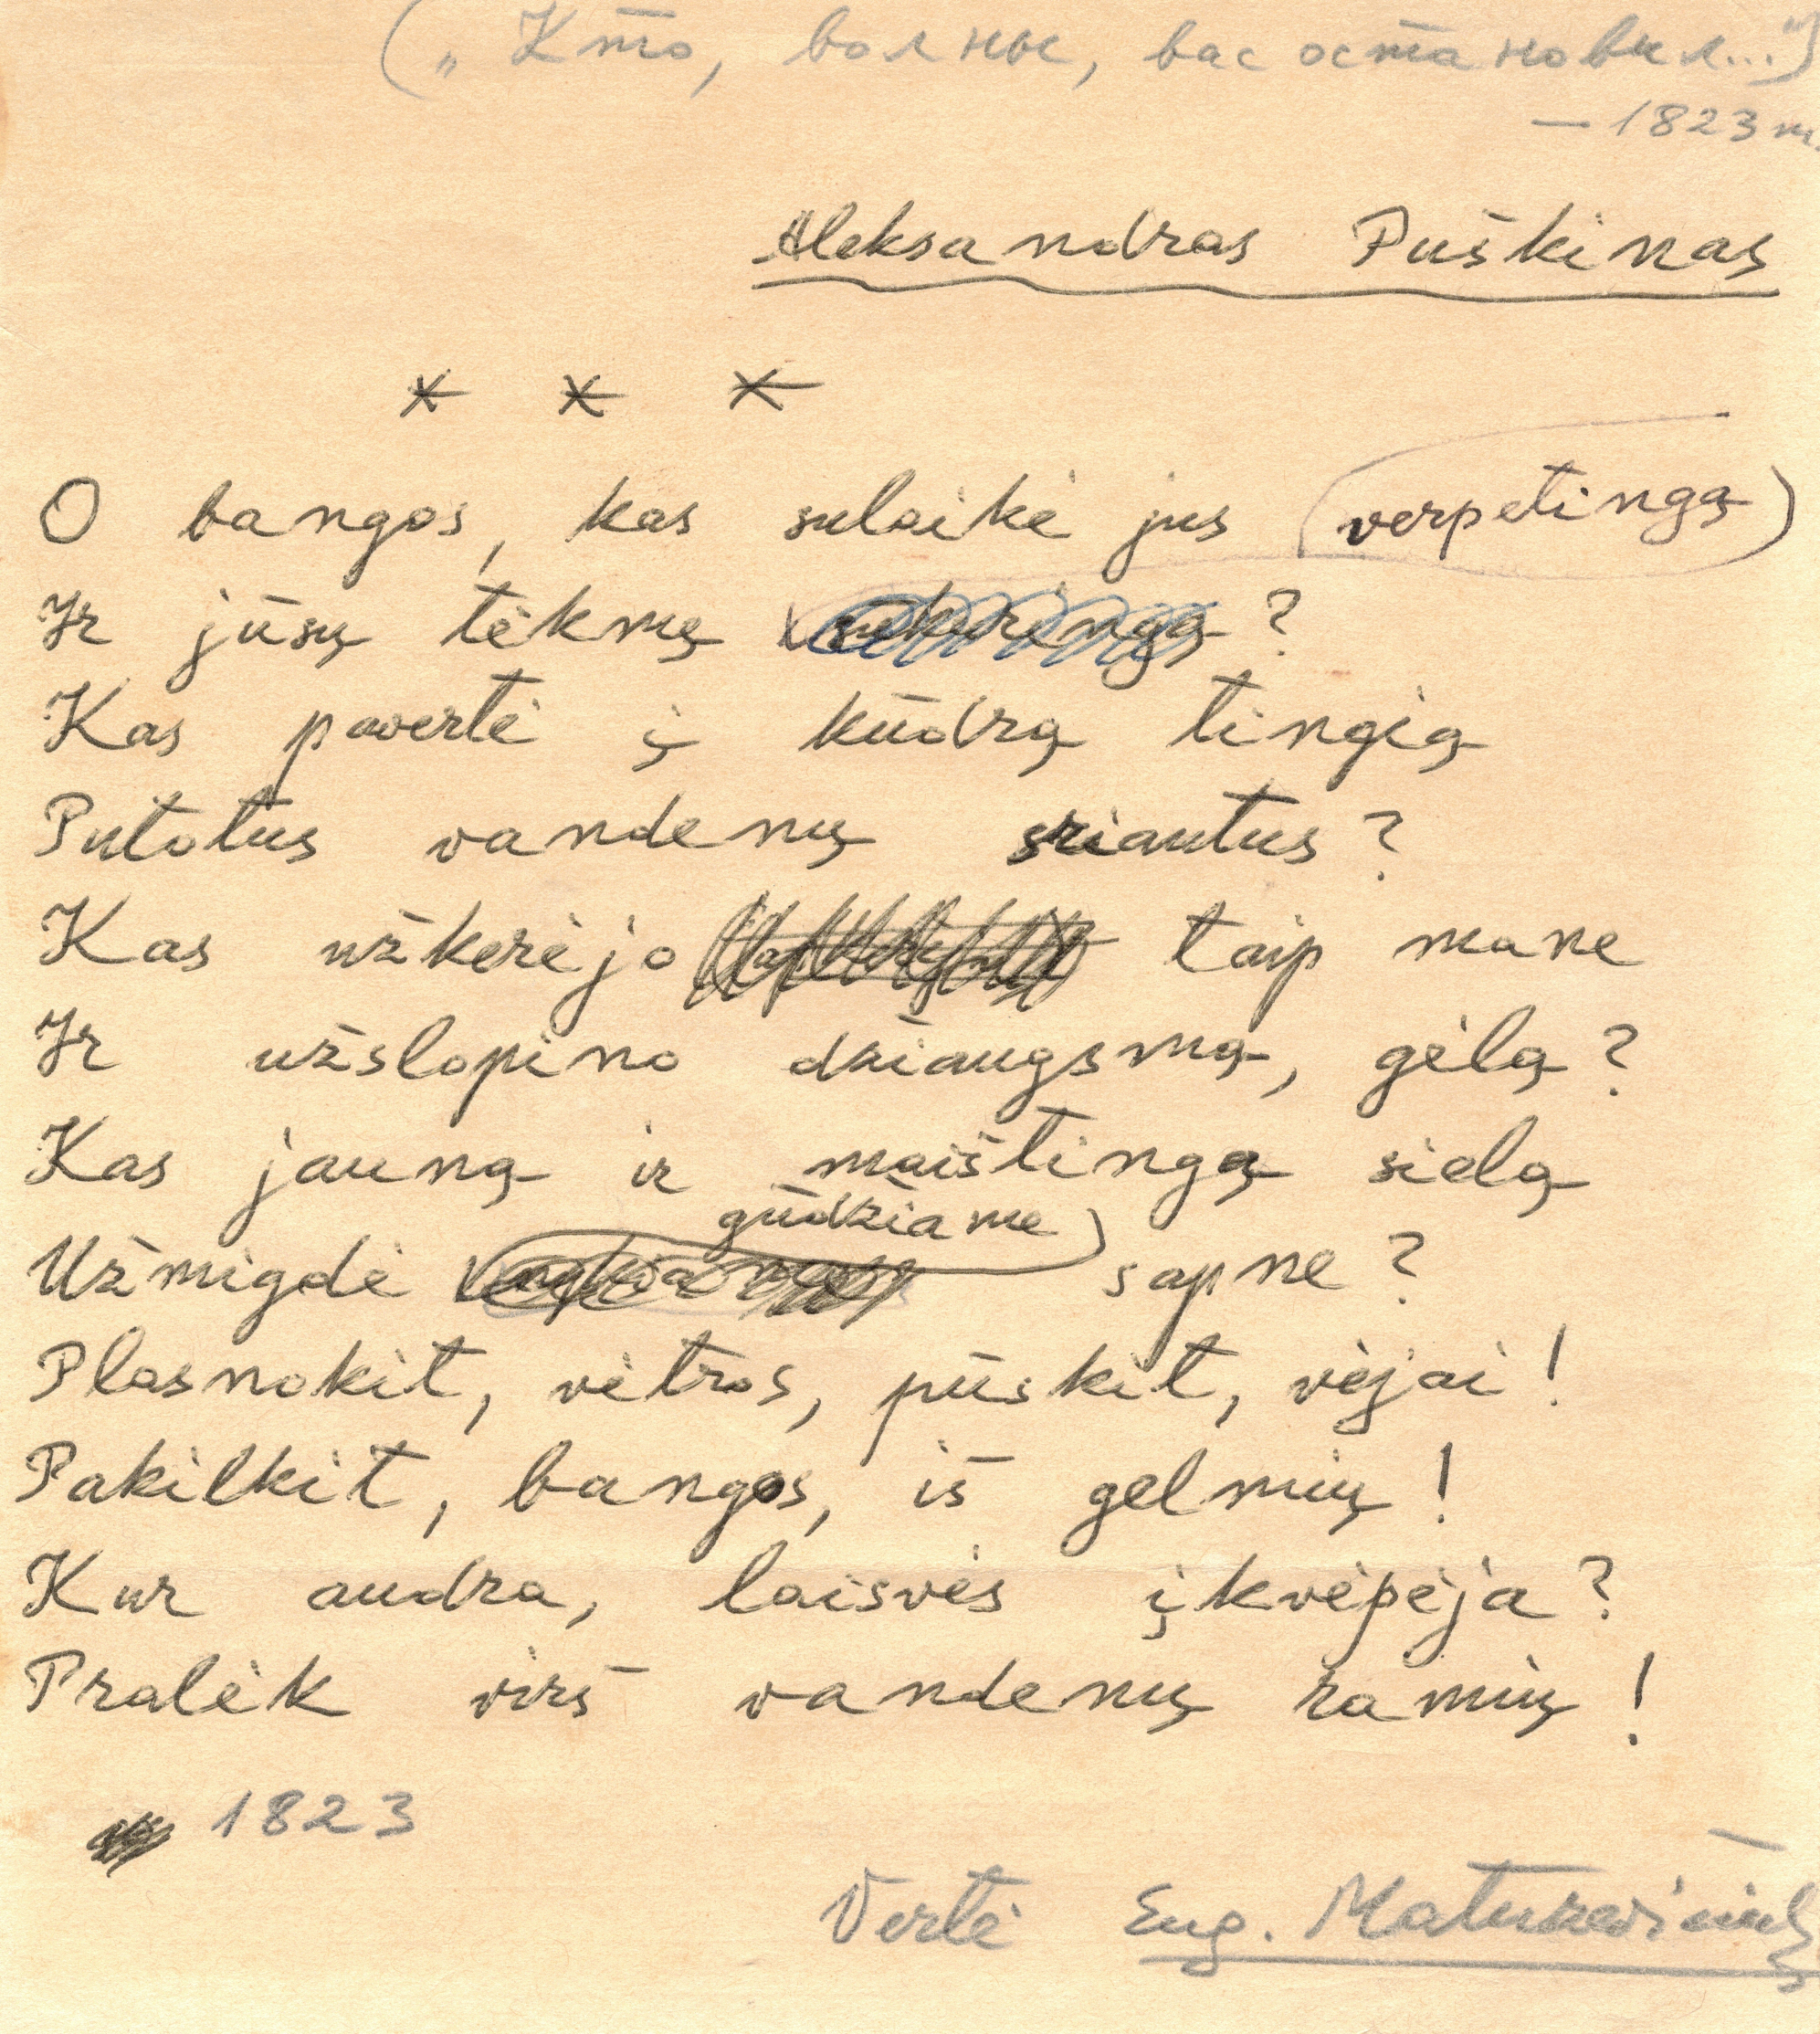 („Кто, волны, вас остановил...")
— 1823 m.
Aleksandras Puškinas
* * *
O bangos, kas sulaikė jus (verpetingą)
Ir jūsų tėkmę ?
Kas pavertė į kūdrą tingią
Putotus vandenų sriautus?
Kas užkerėjo taip mane
Ir užslopino džiaugsmą, gėlą?
Kas jauną ir maištingą sielą
gūdžiame
Užmigdė sapne?
Plasnokit, vėtros, pūskit, vėjai!
Pakilkit, bangos, iš gelmių!
Kur audra, laisvės įkvėpėja?
Pralėk virš vandenų ramių!
1823
Vertė Eug. Matuzevičius